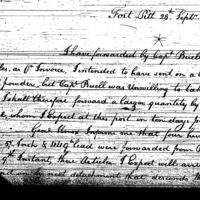 Fort Pitt 28th Septr
I have forwarded by Capt Buell
as, as Pr Invoice, I intended to have sent on a
powder, but Capt Buell was unwilling to tak
I shall therefore forward a larger quantity by
whom I expect at this port in ten days
Genl Knox informs me that four hun
Inch & lead were forwarded from
of Instant, these Articles I expect will arri
by next detachment that descends the